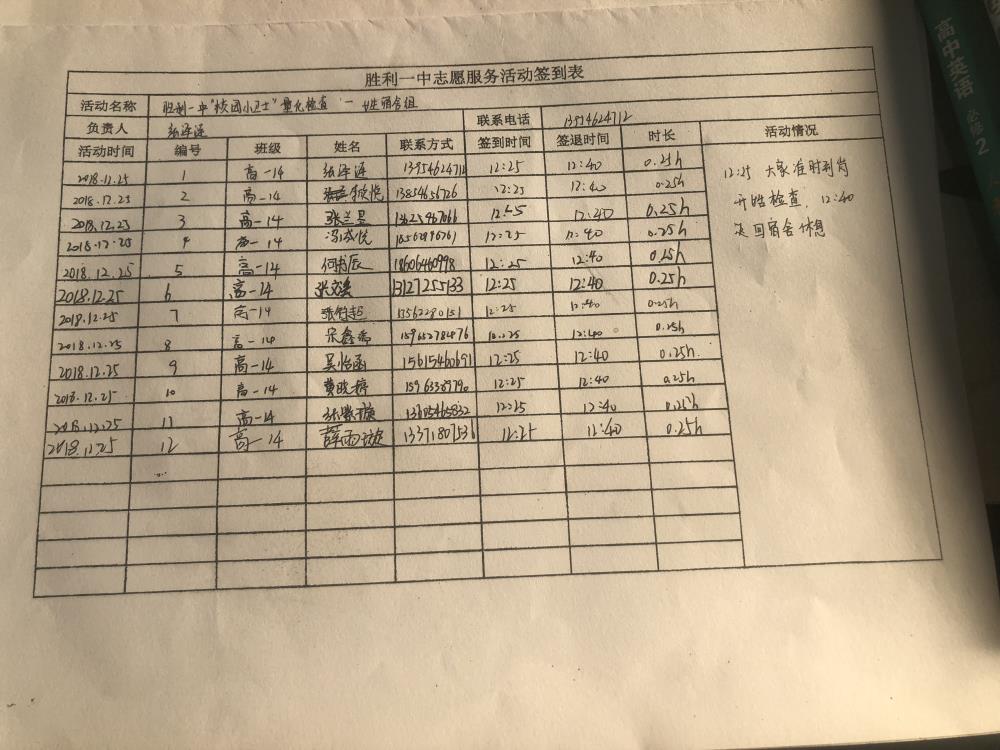 胜利一中志愿服务活动签到表
活动名称 胜利一中"校园小卫士"量化检查 一 女班宿舍组
负责人 张泽涵 联系电话 13954624712
活动时间 编号 班级 姓名 联系方式 签到时间 签退时间 时长 活动情况
2018.12.25 1 高一14 张泽涵 13954624712 12:25 12:40 0.25h
2018.12.25 2 高一14 13854656726 12:25 12:40 0.25h
2018.12.25 3 高一14 张兰昱 12:25 12:40 0.25h
2018.12.25 4 高一14 冯成悦 12:25 12:40 0.25h
2018.12.25 5 高一14 何书辰 18606460998 12:25 12:40 0.25h
2018.12.25 6 高一14 张文溪 13127255133 12:25 12:40 0.25h
2018.12.25 7 高一14 13562280151 12:25 12:40 0.25h
2018.12.25 8 高一14 宋鑫希 12:25 12:40 0.25h
2018.12.25 9 高一14 吴怡函 15615460691 12:25 12:40 0.25h
2018.12.25 10 高一14 黄晓婷 12:25 12:40 0.25h
2018.12.25 11 高一14 13605465832 12:25 12:40 0.25h
2018.12.25 12 高一14 薛雨璇 13371807536 12:25 12:40 0.25h
12:25 大家准时到岗
开始检查, 12:40
返回宿舍休息
高中英语
必修2